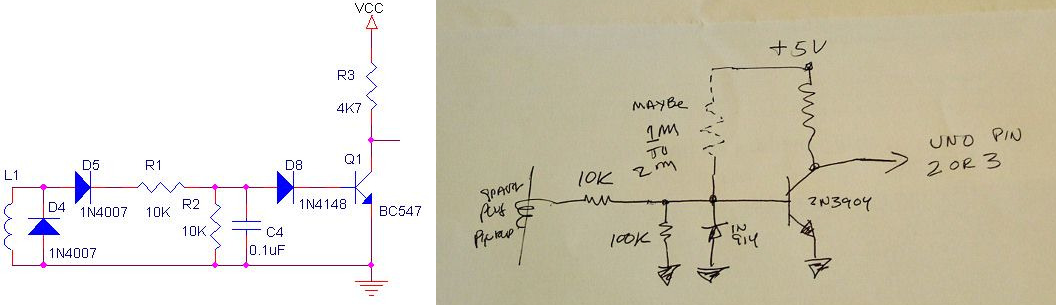 VCC
R3
4K7
L1
D5
R1
D8
Q1
D4
1N4007
10K
R2
10K
1N4148
BC547
C4
0.1uF
1N4007
+5V
MAYBE
1M
TO
2M
UNO PIN
2 OR 3
SPARK
PLUG
PICKUP
10K
100K
1N
914
2N3904